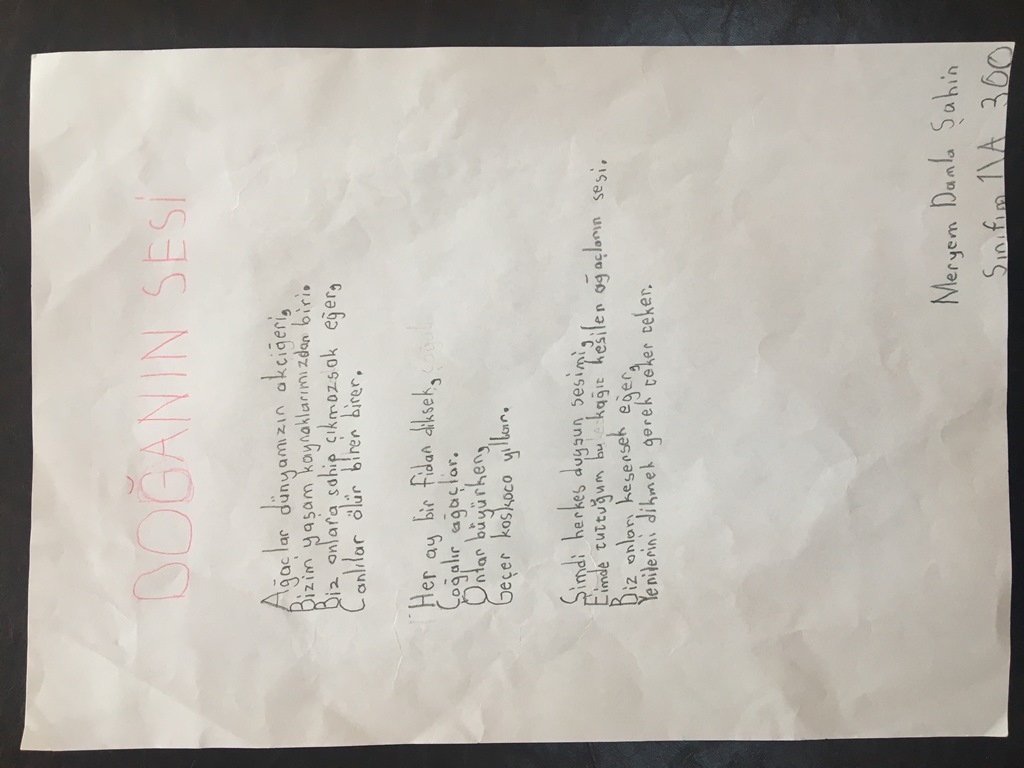 DOĞANIN SESİ
Ağaçlar dünyamızın akciğeri,
Bizim yaşam kaynaklarımızdan biri.
Biz onlara sahip çıkmazsak eğer,
Canlılar ölür birer birer.
Her ay bir fidan diksek,
Çoğalır ağaçlar.
Onlar büyürken,
Geçer koskoca yıllar.
Şimdi herkes duysun sesimi,
Elimde tuttuğum bu kağıt kesilen ağaçların sesi.
Biz onları kesersek eğer,
Yenilerini dikmek gerek teker teker.
Meryem Damla Şahin
Sınıfım 1\A 300